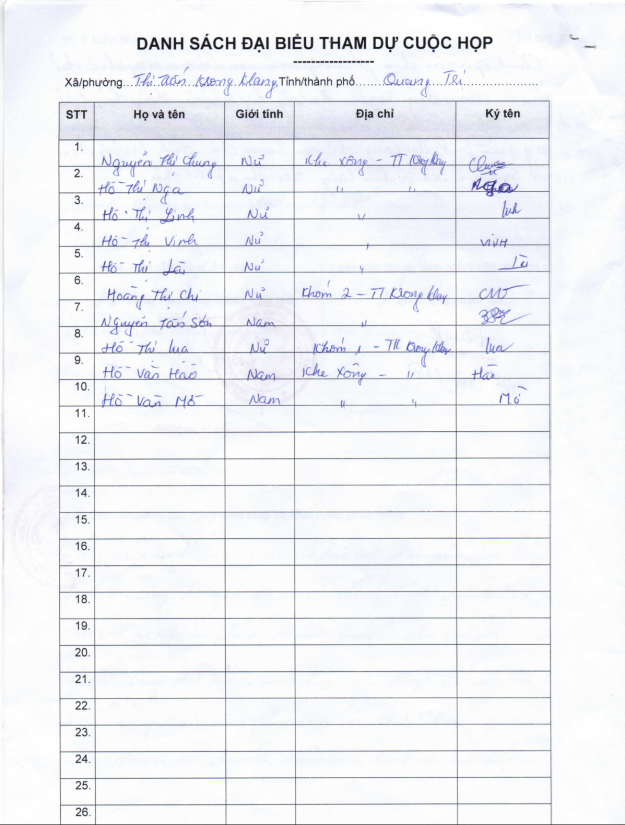 DANH SÁCH ĐẠI BIỂU THAM DỰ CUỘC HỌP
Xã/phường....Thị trấn Krong Klang.Tỉnh/thành phố........Quảng Trị
STT Họ và tên Giới tính Địa chỉ Ký tên
1. Nguyễn Thị Chung Nữ Khe Xông - TT Krong Klang
2. Hồ Thị Nga Nữ " " Nga
3. Hồ Thị Linh Nữ "
4. Hồ Thị Vinh Nữ " VINH
5. Hồ Thị Lài Nữ "
6. Hoàng Thị Chi Nữ Khóm 2 - TT Krong Klang
7. Nguyễn Tấn Sơn Nam "
8. Hồ Thị lua Nữ Khóm 1 - TT Krong Klang lua
9. Hồ Văn Hào Nam Khe Xông - "
10. Hồ Văn Mò Nam " " Mò
11.
12.
13.
14.
15.
16.
17.
18.
19.
20.
21.
22.
23.
24.
25.
26.